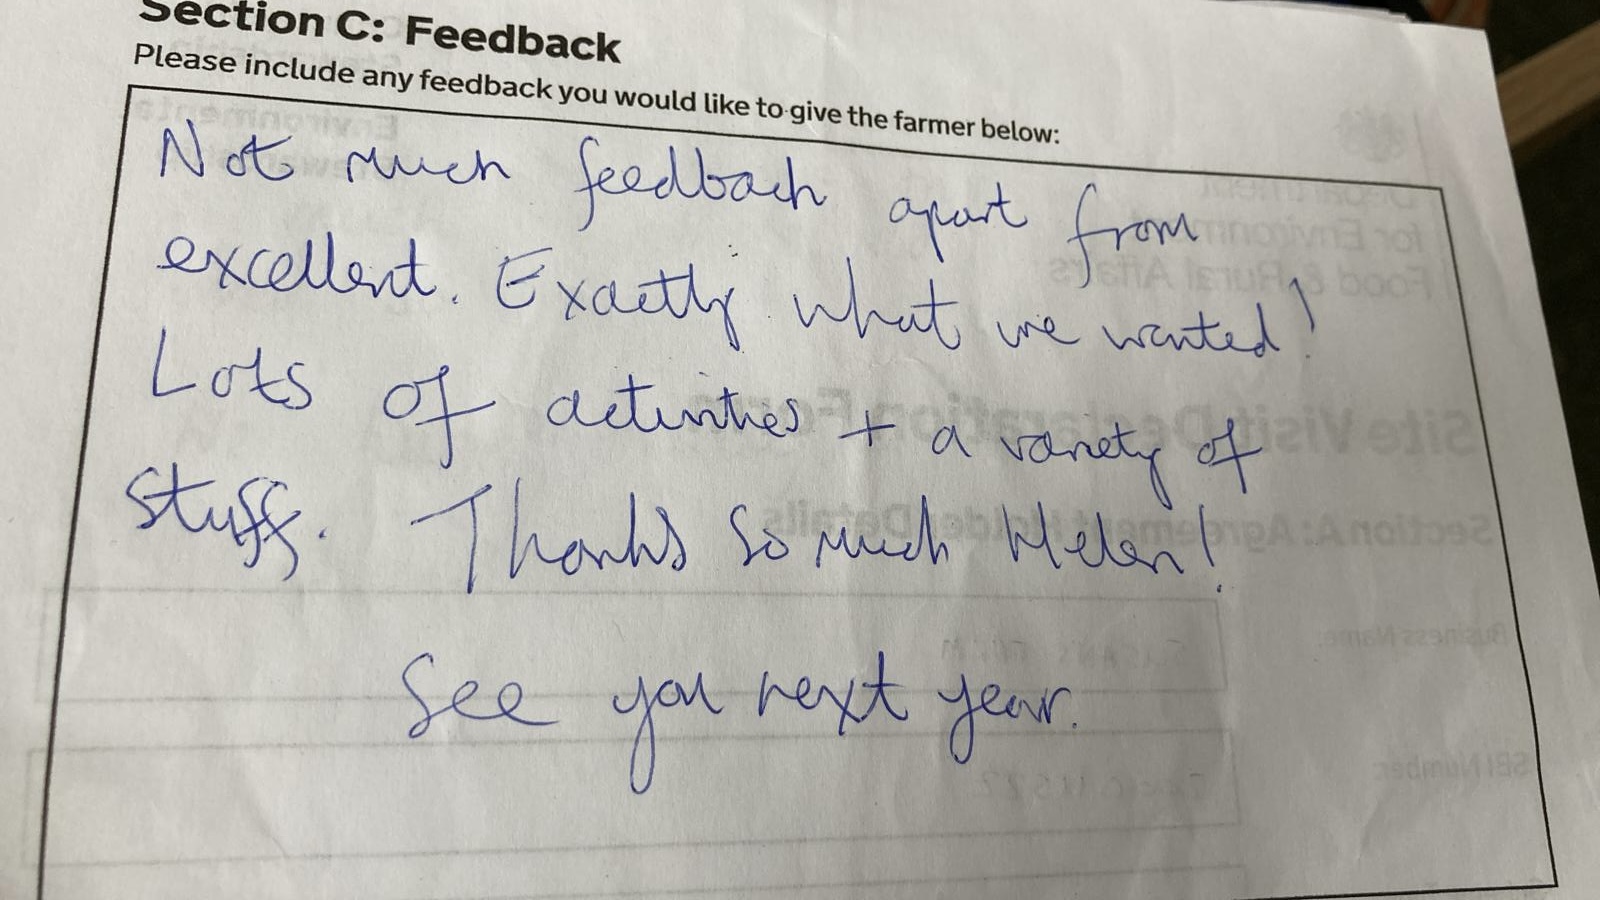 Section C: Feedback
Please include any feedback you would like to give the farmer below:
Not much feedback apart from
excellent. Exactly what we wanted!
Lots of activities + a variety of
stuff. Thanks so much Helen!
See you next year.